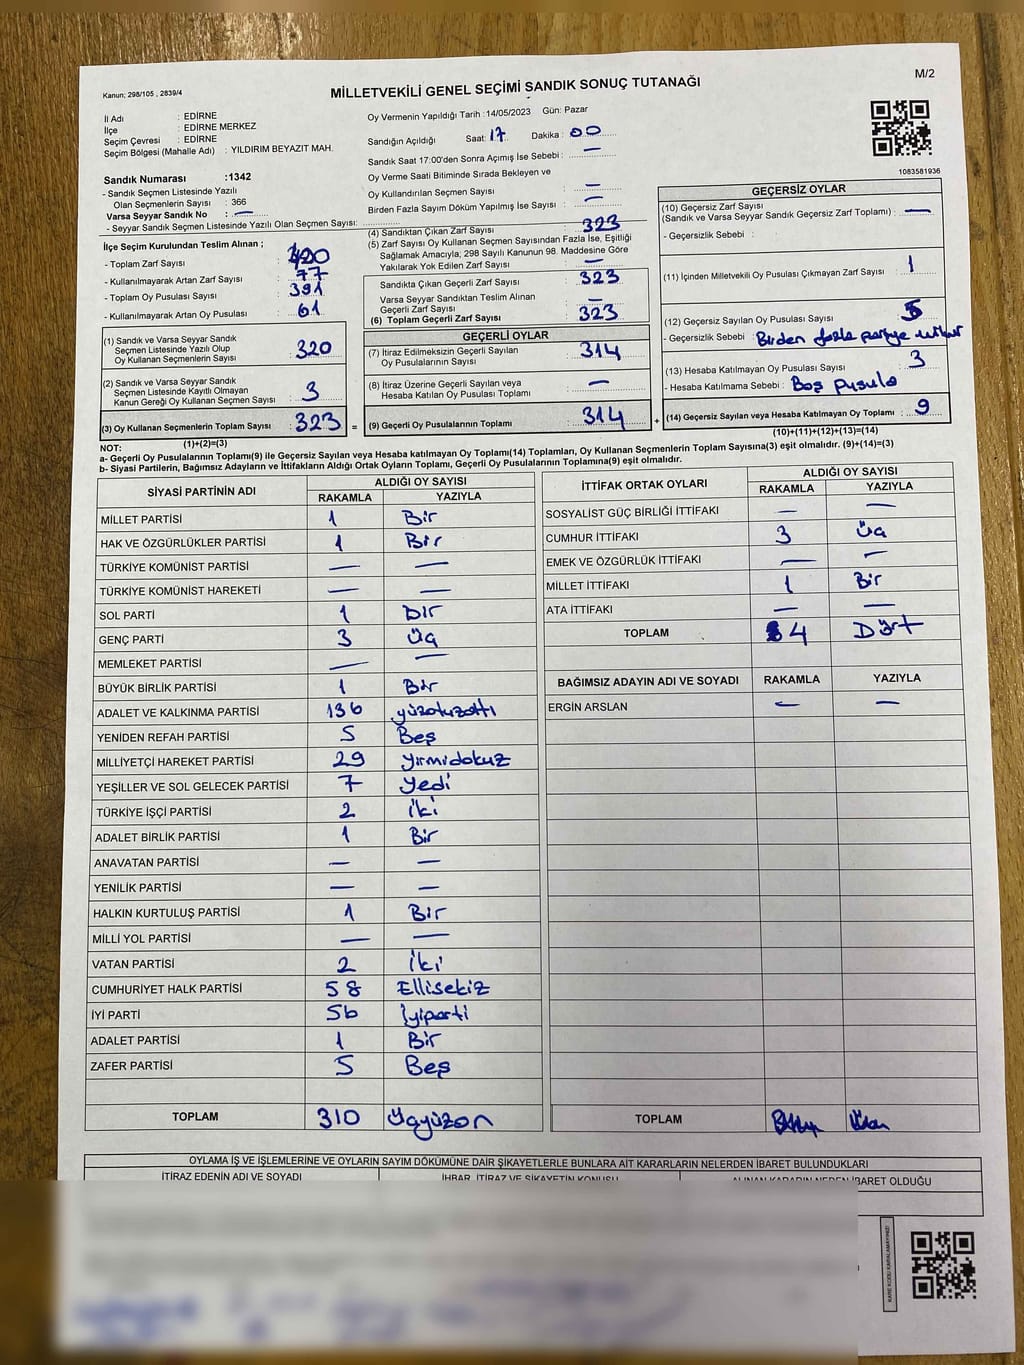 Kanun; 298/105 , 2839/4
MİLLETVEKİLİ GENEL SEÇİMİ SANDIK SONUÇ TUTANAĞI
M/2
İl Adı : EDİRNE
İlçe : EDİRNE MERKEZ
Seçim Çevresi : EDİRNE
Seçim Bölgesi (Mahalle Adı) : YILDIRIM BEYAZIT MAH.
Sandık Numarası :1342
- Sandık Seçmen Listesinde Yazılı
Olan Seçmenlerin Sayısı : 366
Varsa Seyyar Sandık No : —
- Seyyar Sandık Seçmen Listesinde Yazılı Olan Seçmen Sayısı:
İlçe Seçim Kurulundan Teslim Alınan ;
- Toplam Zarf Sayısı :
- Kullanılmayarak Artan Zarf Sayısı : 77
- Toplam Oy Pusulası Sayısı : 391
- Kullanılmayarak Artan Oy Pusulası : 61
(1) Sandık ve Varsa Seyyar Sandık
Seçmen Listesinde Yazılı Olup
Oy Kullanan Seçmenlerin Sayısı : 320
(2) Sandık ve Varsa Seyyar Sandık
Seçmen Listesinde Kayıtlı Olmayan
Kanun Gereği Oy Kullanan Seçmen Sayısı : 3
(3) Oy Kullanan Seçmenlerin Toplam Sayısı : 323
(1)+(2)=(3)
Oy Vermenin Yapıldığı Tarih :14/05/2023 Gün: Pazar
Sandığın Açıldığı Saat: 17 Dakika : 00
Sandık Saat 17:00'den Sonra Açımış İse Sebebi : —
Oy Verme Saati Bitiminde Sırada Bekleyen ve
Oy Kullandırılan Seçmen Sayısı : —
Birden Fazla Sayım Döküm Yapılmış İse Sayısı : —
(4) Sandıktan Çıkan Zarf Sayısı : 323
(5) Zarf Sayısı Oy Kullanan Seçmen Sayısından Fazla İse, Eşitliği
Sağlamak Amacıyla; 298 Sayılı Kanunun 98. Maddesine Göre
Yakılarak Yok Edilen Zarf Sayısı : —
Sandıkta Çıkan Geçerli Zarf Sayısı : 323
Varsa Seyyar Sandıktan Teslim Alınan
Geçerli Zarf Sayısı : —
(6) Toplam Geçerli Zarf Sayısı : 323
GEÇERLİ OYLAR
(7) İtiraz Edilmeksizin Geçerli Sayılan
Oy Pusulalarının Sayısı : 314
(8) İtiraz Üzerine Geçerli Sayılan veya
Hesaba Katılan Oy Pusulası Toplamı : —
= (9) Geçerli Oy Pusulalarının Toplamı : 314 +
1083581936
GEÇERSİZ OYLAR
(10) Geçersiz Zarf Sayısı
(Sandık ve Varsa Seyyar Sandık Geçersiz Zarf Toplamı) : —
- Geçersizlik Sebebi :
(11) İçinden Milletvekili Oy Pusulası Çıkmayan Zarf Sayısı : 1
(12) Geçersiz Sayılan Oy Pusulası Sayısı : 5
- Geçersizlik Sebebi : Birden fazla partiye
(13) Hesaba Katılmayan Oy Pusulası Sayısı : 3
- Hesaba Katılmama Sebebi : Boş pusula
(14) Geçersiz Sayılan veya Hesaba Katılmayan Oy Toplamı : 9
(10)+(11)+(12)+(13)=(14)
NOT:
a- Geçerli Oy Pusulalarının Toplamı(9) ile Geçersiz Sayılan veya Hesaba katılmayan Oy Toplamı(14) Toplamları, Oy Kullanan Seçmenlerin Toplam Sayısına(3) eşit olmalıdır. (9)+(14)=(3)
b- Siyasi Partilerin, Bağımsız Adayların ve İttifakların Aldığı Ortak Oyların Toplamı, Geçerli Oy Pusulalarının Toplamına(9) eşit olmalıdır.
SİYASİ PARTİNİN ADI ALDIĞI OY SAYISI
RAKAMLA YAZIYLA
MİLLET PARTİSİ 1 Bir
HAK VE ÖZGÜRLÜKLER PARTİSİ 1 Bir
TÜRKİYE KOMÜNİST PARTİSİ — —
TÜRKİYE KOMÜNİST HAREKETİ — —
SOL PARTİ 1 Bir
GENÇ PARTİ 3 Üç
MEMLEKET PARTİSİ — —
BÜYÜK BİRLİK PARTİSİ 1 Bir
ADALET VE KALKINMA PARTİSİ 136 yüzotuzaltı
YENİDEN REFAH PARTİSİ 5 Beş
MİLLİYETÇİ HAREKET PARTİSİ 29 yirmidokuz
YEŞİLLER VE SOL GELECEK PARTİSİ 7 Yedi
TÜRKİYE İŞÇİ PARTİSİ 2 İki
ADALET BİRLİK PARTİSİ 1 Bir
ANAVATAN PARTİSİ — —
YENİLİK PARTİSİ — —
HALKIN KURTULUŞ PARTİSİ 1 Bir
MİLLİ YOL PARTİSİ — —
VATAN PARTİSİ 2 İki
CUMHURİYET HALK PARTİSİ 58 Ellisekiz
İYİ PARTİ 56 İyiparti
ADALET PARTİSİ 1 Bir
ZAFER PARTİSİ 5 Beş
TOPLAM 310 Üçyüzon
İTTİFAK ORTAK OYLARI ALDIĞI OY SAYISI
RAKAMLA YAZIYLA
SOSYALİST GÜÇ BİRLİĞİ İTTİFAKI — —
CUMHUR İTTİFAKI 3 Üç
EMEK VE ÖZGÜRLÜK İTTİFAKI — —
MİLLET İTTİFAKI 1 Bir
ATA İTTİFAKI — —
TOPLAM 4 Dört
BAĞIMSIZ ADAYIN ADI VE SOYADI RAKAMLA YAZIYLA
ERGİN ARSLAN — —
TOPLAM
OYLAMA İŞ VE İŞLEMLERİNE VE OYLARIN SAYIM DÖKÜMÜNE DAİR ŞİKAYETLERLE BUNLARA AİT KARARLARIN NELERDEN İBARET BULUNDUKLARI
İTİRAZ EDENİN ADI VE SOYADI İHBAR, İTİRAZ VE ŞİKAYETİN KONUSU ALINAN KARARIN NEDEN İBARET OLDUĞU
KARE KODU KARALAMAYINIZ!